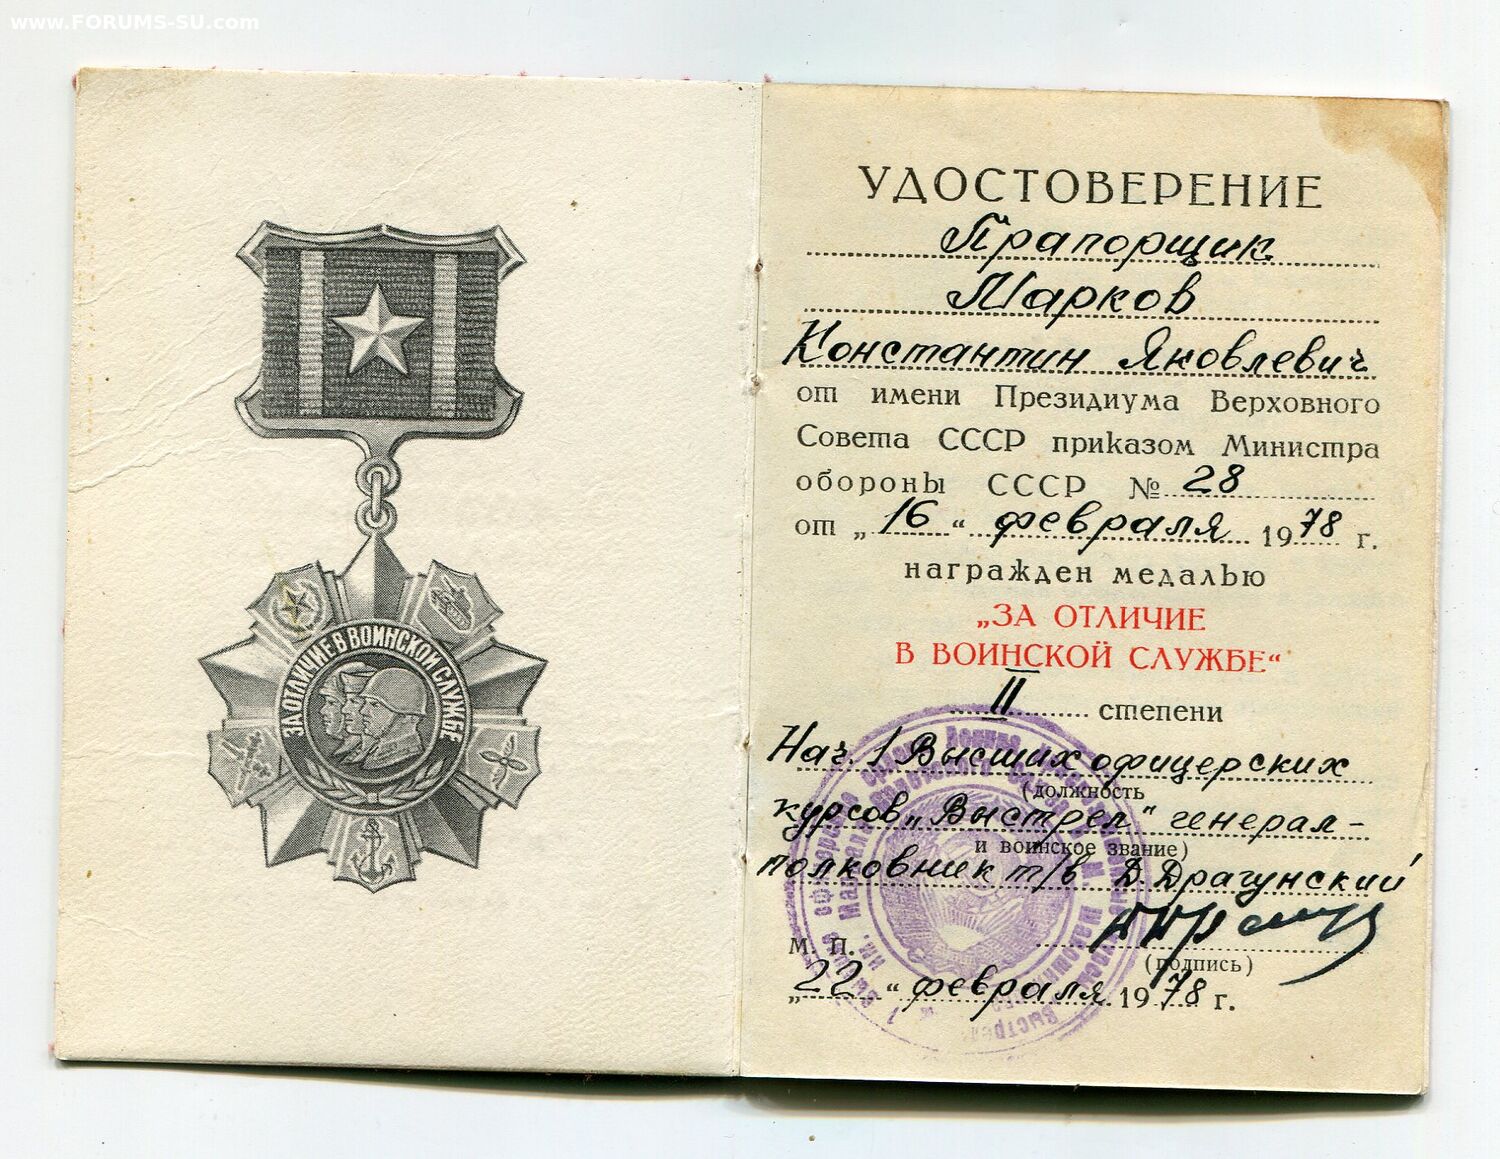 www.FORUMS-SU.com
ЗА ОТЛИЧИЕ В ВОИНСКОЙ СЛУЖБЕ
УДОСТОВЕРЕНИЕ
Прапорщик
Марков
Константин Яковлевич
от имени Президиума Верховного
Совета СССР приказом Министра
обороны СССР № 28
от „16“ февраля 1978 г.
награжден медалью
„ЗА ОТЛИЧИЕ
В ВОИНСКОЙ СЛУЖБЕ“
II степени
Нач. 1 Высших офицерских
(должность
курсов „Выстрел“ генерал-
и воинское звание)
полковник т/в Д. Драгунский
М. П.
(подпись)
„22“ февраля 1978 г.